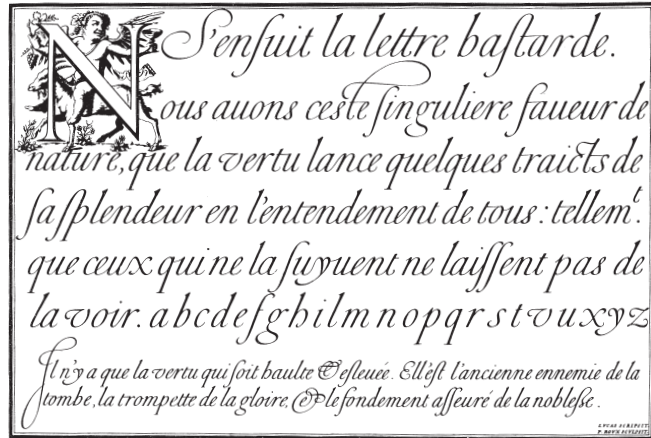 S'enſuit la lettre baſtarde.
Nous auons ceste ſinguliere faueur de
nature, que la vertu lance quelques traicts de
ſa ſplendeur en l'entendement de tous: tellemᵗ.
que ceux qui ne la ſuyuent ne laiſſent pas de
la voir. a b c d e f g h i l m n o p q r s t v u x y z
Il n'y a que la vertu qui ſoit haulte & eſleuée. Ell'eſt l'ancienne ennemie de la
tombe, la trompette de la gloire, & le fondement aſſeuré de la nobleſſe.
LVCAS SCRIPSIT.